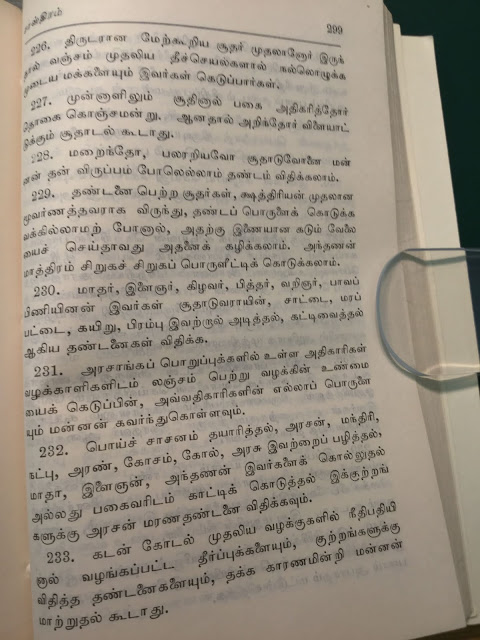 சாஸ்திரம்
299
226. திருடரான மேற்கூறிய சூதர் முதலானோர் இருந்
தால் வஞ்சம் முதலிய தீச்செயல்களால் நல்லொழுக்க
முடைய மக்களையும் இவர்கள் கெடுப்பார்கள்.
227. முன்னாளிலும் சூதினால் பகை அதிகரித்தோர்
தொகை கொஞ்சமன்று. ஆனதால் அறிந்தோர் விளையாட்
டுக்கும் சூதாடல் கூடாது.
228. மறைந்தோ, பலரறியவோ சூதாடுவோனை மன்
னன் தன் விருப்பம் போலெல்லாம் தண்டம் விதிக்கலாம்.
229. தண்டனை பெற்ற சூதர்கள், க்ஷத்திரியன் முதலான
மூவர்ணத்தவராக விருந்து, தண்டப் பொருளைக் கொடுக்க
வக்கில்லாமற் போனால், அதற்கு இணையான கடும் வேலை
யைச் செய்தாவது அதனைக் கழிக்கலாம். அந்தணன்
மாத்திரம் சிறுகச் சிறுகப் பொருளீட்டிக் கொடுக்கலாம்.
230. மாதர், இளைஞர், கிழவர், பித்தர், வறிஞர், பாவப்
பிணியினன் இவர்கள் சூதாடுவராயின், சாட்டை, மரப்
பட்டை, கயிறு, பிரம்பு இவற்றால் அடித்தல், கட்டிவைத்தல்
ஆகிய தண்டனைகள் விதிக்க.
231. அரசாங்கப் பொறுப்புக்களில் உள்ள அதிகாரிகள்
வழக்காளிகளிடம் லஞ்சம் பெற்று வழக்கின் உண்மை
யைக் கெடுப்பின், அவ்வதிகாரிகளின் எல்லாப் பொருளை
யும் மன்னன் கவர்ந்துகொள்ளவும்.
232. பொய்ச் சாசனம் தயாரித்தல், அரசன், மந்திரி,
நட்பு, அரண், கோசம், கோல், அரசு இவற்றைப் பழித்தல்,
மாதர, இளைஞன், அந்தணன் இவர்களைக் கொல்லுதல்
அல்லது பகைவரிடம் காட்டிக் கொடுத்தல் இக்குற்றங்
களுக்கு அரசன் மரணதண்டனை விதிக்கவும்.
233. கடன் கோடல் முதலிய வழக்குகளில் நீதிபதியி
னால் வழங்கப்பட்ட தீர்ப்புக்களையும், குற்றங்களுக்கு
விதித்த தண்டனைகளையும், தக்க காரணமின்றி மன்னன்
மாற்றுதல் கூடாது.